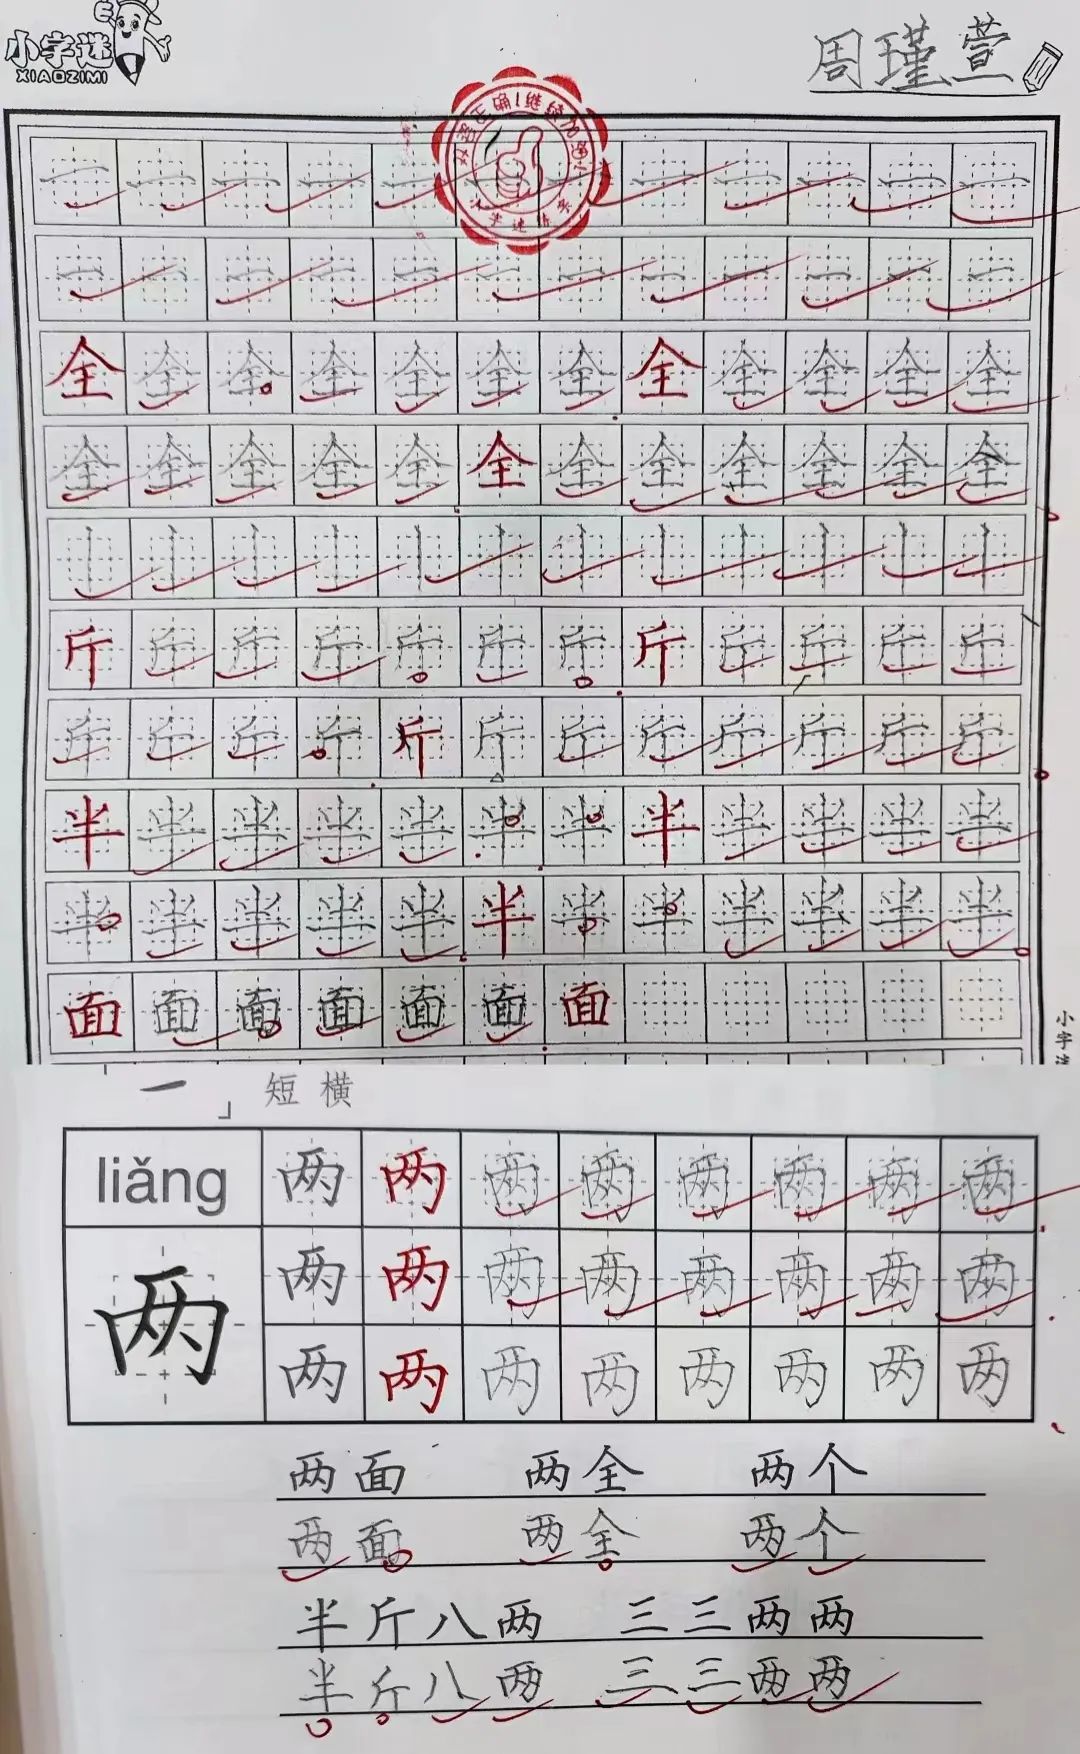 小字迷
XIAOZIMI
周瑾萱
双姿正确！继续加油！
小字迷练字
一 一 一 一 一 一 一 一 一 一 一
一 一 一 一 一 一 一 一 一 一 一 一
全 全 全 全 全 全 全 全 全 全 全 全
全 全 全 全 全 全 全 全 全 全 全 全
丨 丨 丨 丨 丨 丨 丨 丨 丨 丨 丨 丨
斤 斤 斤 斤 斤 斤 斤 斤 斤 斤 斤 斤
斤 斤 斤 斤 斤 斤 斤 斤 斤 斤 斤 斤
半 半 半 半 半 半 半 半 半 半 半 半
半 半 半 半 半 半 半 半 半 半 半 半
面 面 面 面 面 面 面
小字迷
一 」 短横
liǎng 两 两 两 两 两 两 两 两
两 两 两 两 两 两 两 两 两
两 两 两 两 两 两 两 两
两面 两全 两个
两面 两全 两个
半斤八两 三三两两
半斤八两 三三两两